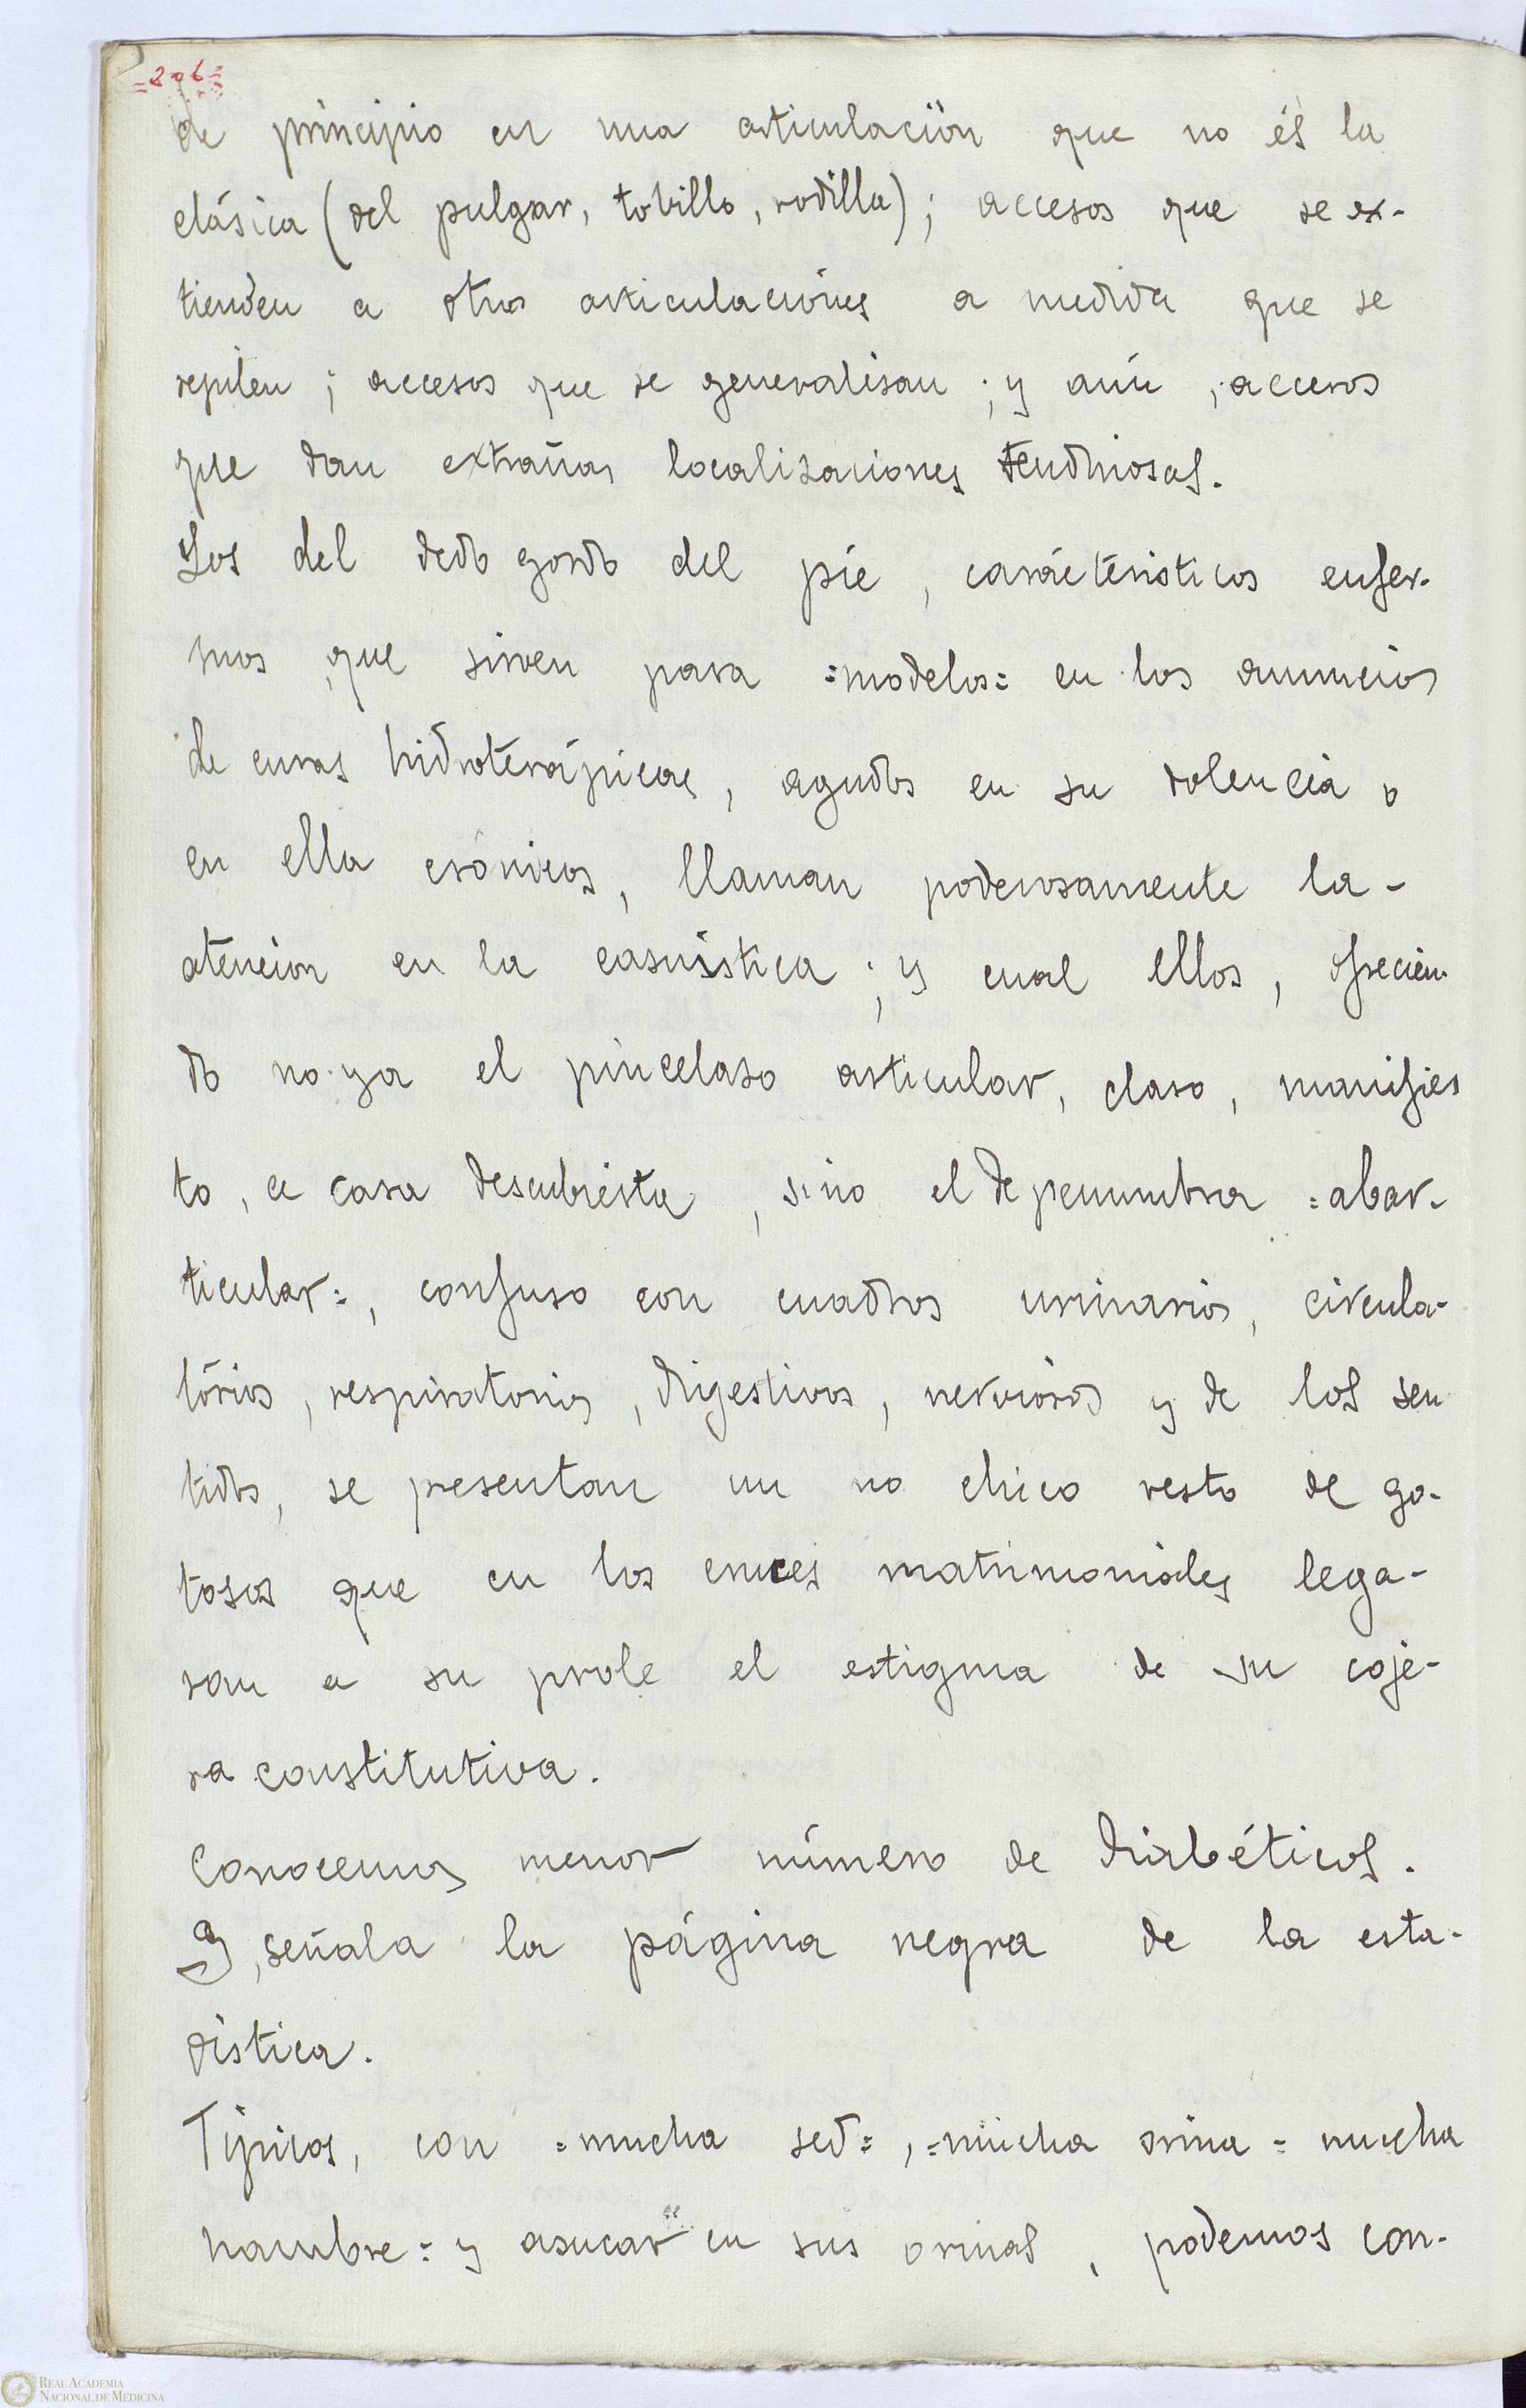 =206=
de principio en una articulación que no és la
clásica (del pulgar, tobillo, rodilla); accesos que se ex-
tienden a otras articulaciónes a medida que se
repiten; accesos que se generalisan; y aún, accesos
que dan extrañas localizaciones tendinosas.
Los del dedo gordo del píe, carácterísticos enfer-
mos, que sirven para =modelos= en los anuncios
de curas hidroterápicas, agudos en su dolencia o
en ella crónicos, llaman poderosamente la-
atencion en la casuística; y cual ellos, ofrecien-
do no ya el pincelaso articular, claro, manifies
to, a cara descubierta, sino el de penumbra =abar-
ticular=, confuso con cuadros urinarios, circula-
tórios, respiratorios, digestivos, nerviosos y de los sen
tidos, se presentan un no chico resto de go-
tosos que en los cruces matrimoniales lega-
ran a su prole el estigma de su coje-
ra constitutiva.
Conocemos menor número de diabéticos.
Y, señala la página negra de la esta-
dística.
Típicos, con =mucha sed=, =mucha orina= mucha
hambre= y asucar en sus orinas, podemos con-
REAL ACADEMIA
NACIONAL DE MEDICINA